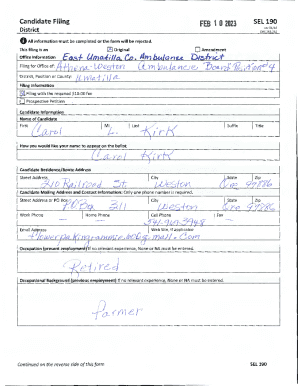 Candidate Filing
District
FEB 10 2023
SEL 190
All information must be completed or the form will be rejected.
This filing is an Original Amendment
Office Information East Umatilla Co. Ambulance District
Filing for Office of: Athena Weston Ambulance Board Position 4
District, Position or County: Umatilla
Filing Information
Filing with the required $10.00 fee
Prospective Petition
Candidate Information
Name of Candidate
First MI Last Suffix Title
Carol L. Kirk
How you would like your name to appear on the ballot
Carol Kirk
Candidate Residence/Route Address
Street Address City State Zip
310 Railroad St. Weston Ore 97886
Candidate Mailing Address and Contact Information: Only one phone number is required.
Street Address or PO Box City State Zip
PO Box 311 Weston Ore 97886
Work Phone Home Phone Cell Phone Fax
Email Address Web Site, if applicable
Occupation (present employment) If no relevant experience, None or NA must be entered.
Retired
Occupational Background (previous employment) If no relevant experience, None or NA must be entered.
Farmer
Continued on the reverse side of this form
SEL 190